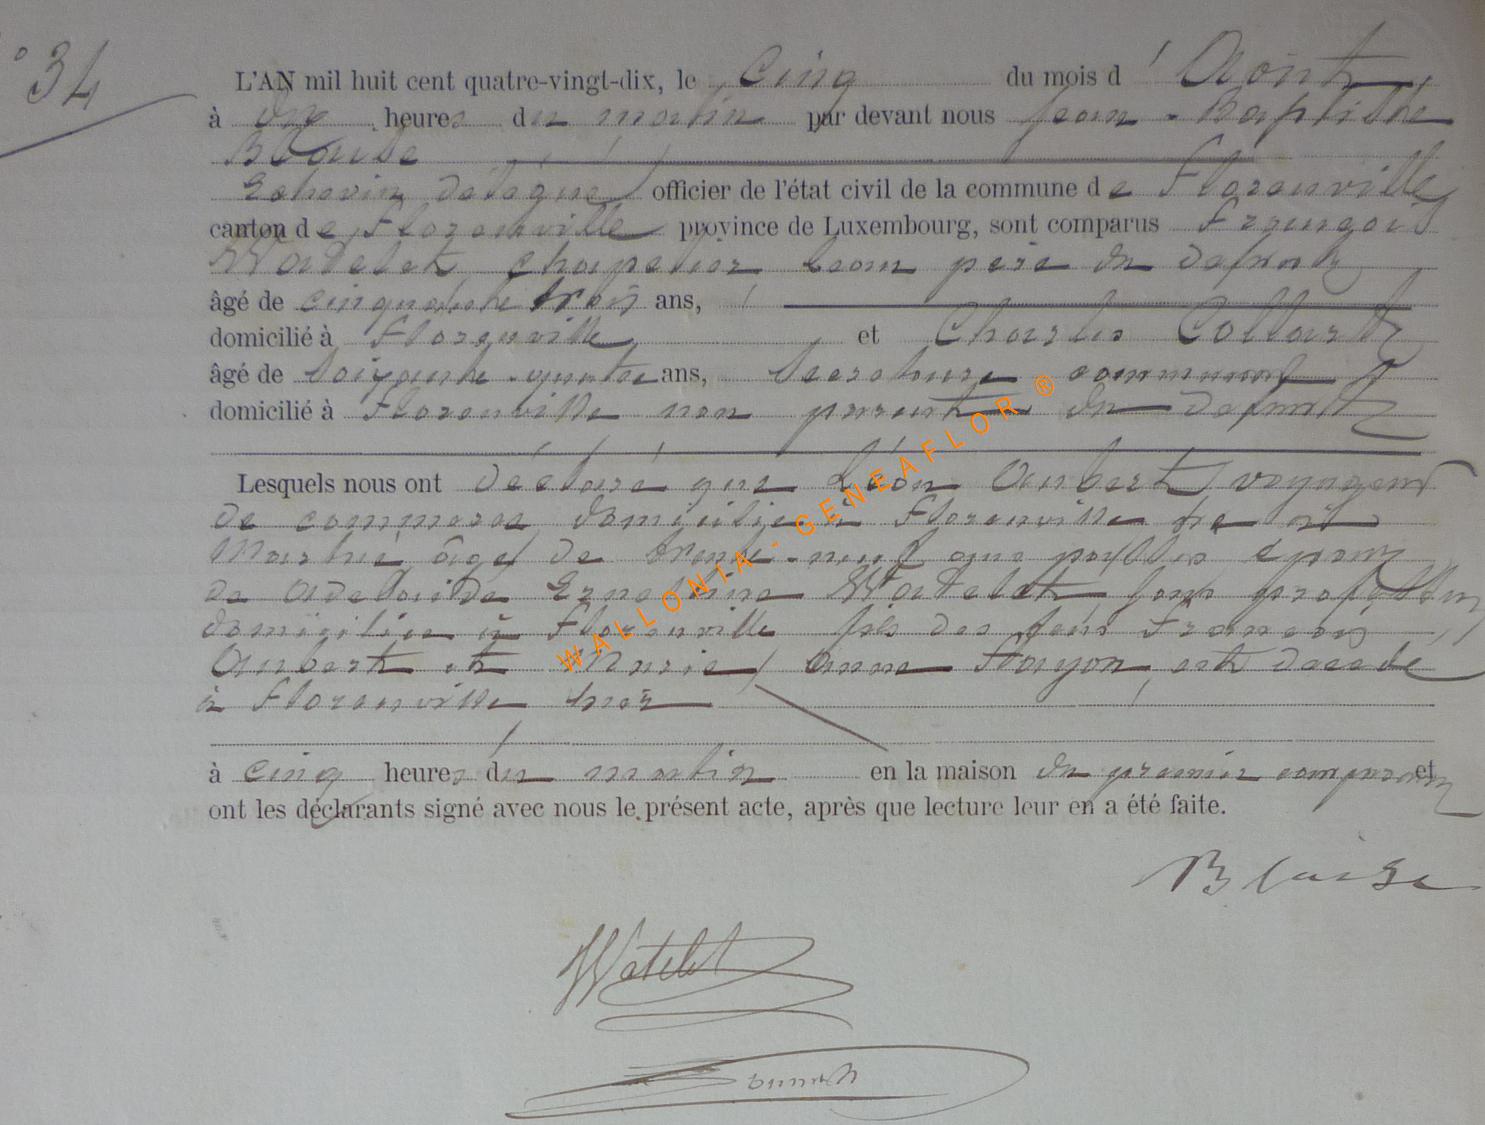 ° 34
L'AN mil huit cent quatre-vingt-dix, le cinq du mois d' Aout
à dix heures du matin par devant nous Jean-Baptiste
Blaise
Echevin délégué officier de l'état civil de la commune de Florenville
canton de Florenville province de Luxembourg, sont comparus François
Watelet chapelier beau père du defunt
âgé de cinquante trois ans,
domicilié à Florenville et Charles Collard
âgé de soixante-quatre ans, secretaire communal
domicilié à Florenville non parent du defunt
Lesquels nous ont déclaré que Léon Aubert voyageur
de commerce domicilié à Florenville né à
âgé de trente-neuf ans époux
de Adelaide Ernestine Watelet sans profession
domiciliée à Florenville fils des feus François
Aubert et Marie Anne est decedé
à Florenville hier
à cinq heures du matin en la maison du premier comparant et
ont les déclarants signé avec nous le présent acte, après que lecture leur en a été faite.
Blaise
Watelet
WALLONIA - GENEAFLOR ®